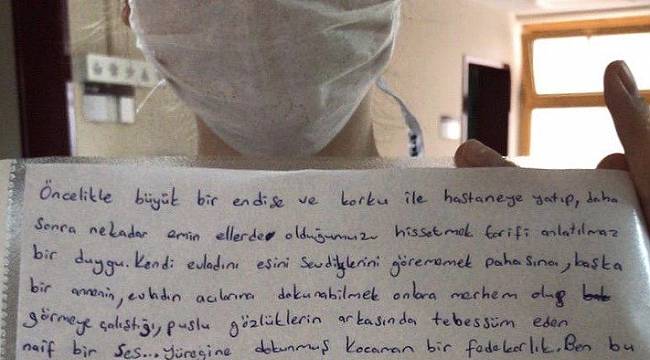 Öncelikle büyük bir endişe ve korku ile hastaneye yatıp, daha
sonra nekadar emin ellerde olduğumuzu hissetmek tarifi anlatılmaz
bir duygu. Kendi evladını eşini sevdiklerini görememek pahasına, başka
bir annenin, evladın acılarına dokunabilmek onlara merhem olup
görmeye çalıştığı, puslu gözlüklerin arkasında tebessüm eden
naif bir ses... yüreğine dokunmuş kocaman bir fedekarlık. Ben bu